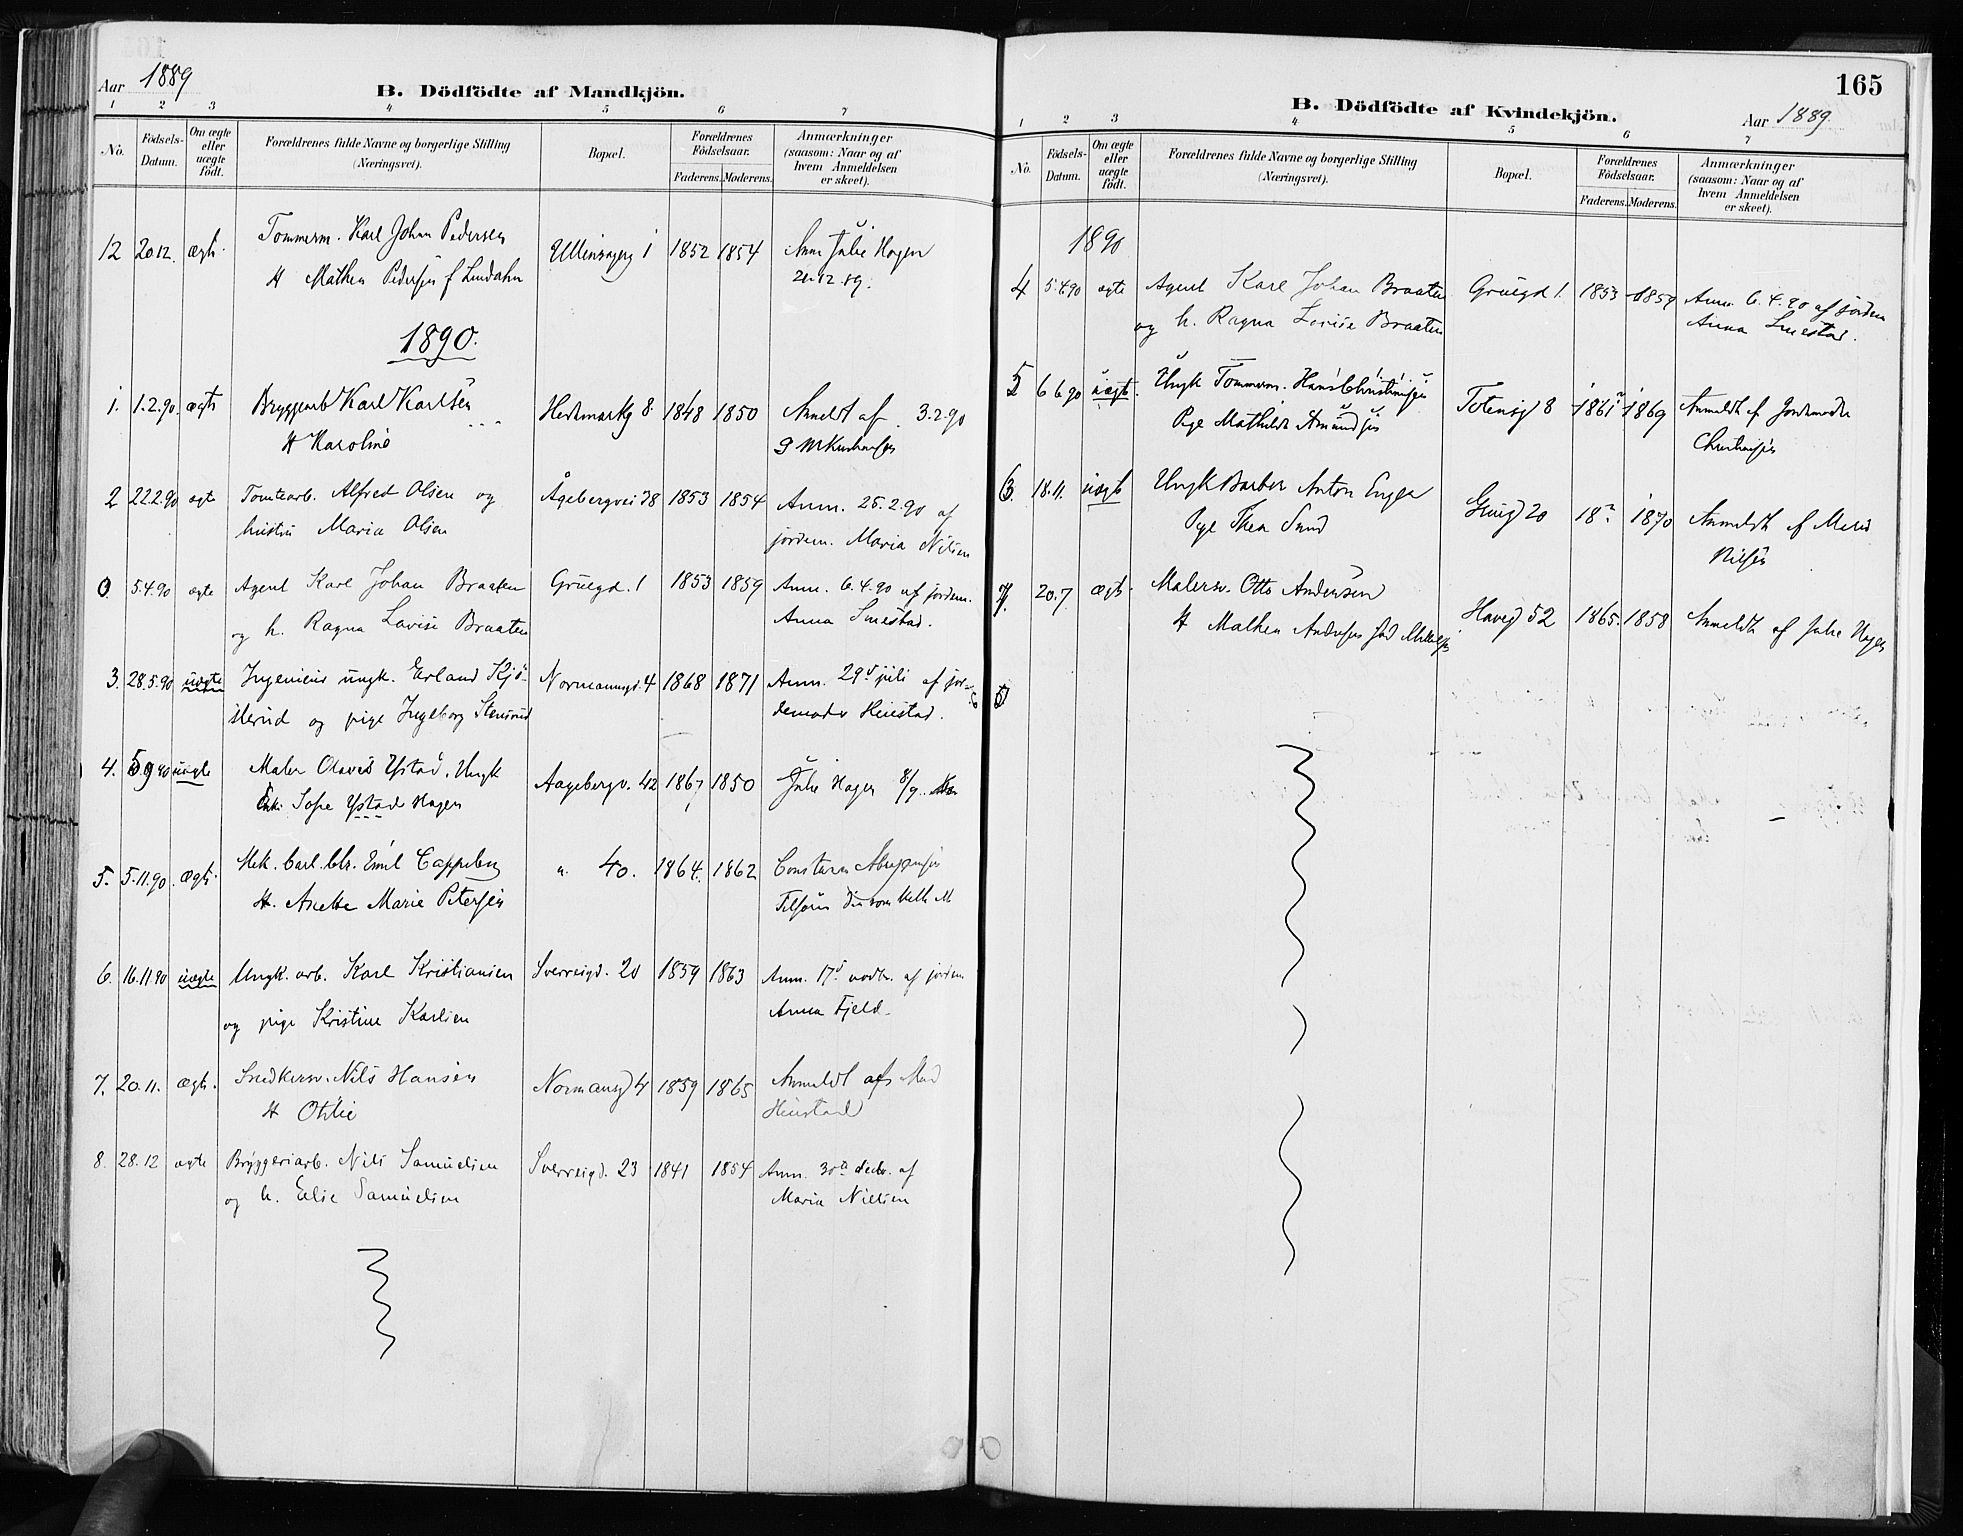 Aar 1889
B. Dödfödte af Mandkjön.
1 2 3 4 5 6 7
No. Födsels-Datum. Om ægte eller uægte födt. Forældrenes fulde Navne og borgerlige Stilling (Næringsvei). Bopæl. Forældrenes Födselsaar. Faderens. Moderens. Anmærkninger (saasom: Naar og af hvem Anmeldelsen er skeet).
12 20.12. ægte Tommerm. Karl Johan Pedersen 1852 1854 Anm Julie Hagen
H Mathea Pedersen f 20.12.89.
1890.
1. 1.2.90. ægte Bryggerarb Karl Karlsen Hedemarkg 8. 1848 1850 Anmeldt af 3.2.90
H Karoline
2 22.2.90 ægte Tomtearb. Alfred Olsen og Ågebergvei 38 1853 1854 Anm. 25.2.90 af
hustru Maria Olsen jordem. Maria Nilsen
0. 5.4.90 ægte Agent Karl Johan Braaten Gruegd. 1 1853 1859 Anm. 6.4.90 af jordem.
og h. Ragna Lovise Braaten Anna Smestad.
3. 28.5.90 uægte Ingenieur ungk. Erland Kjö- Normannsgd. 4 1868 1871 Anm. 29d juli af jor-
sterud og pige Ingeborg Stensrud demoder
4. 5.9.90 uægte Maler Olaves Ystad, Ungk Aagebergv. 42 1867 1850 Julie Hagen 8/9
Enk. Sofie Ystad Hagen
5. 5.11.90. ægte Mek. Carl. Chr. Emil Cappelen " 40. 1864. 1862
H. Anette Marie Petersen
6. 16.11.90 uægte Ungk. arb. Karl Kristiansen Sverresgd. 20 1859 1863 Anm. 17d novbr. af jordem
og pige Kristine Karlsen Anna Fjeld.
7. 20.11. ægte. Snedkersv. Nils Hansen Normansgd 4 1859 1865 Anmeldt af Mad
H Othlie
8. 28.12 ægte Bryggeriarb. Nils Samuelsen Sverresgd. 23 1841 1854 Anm. 30te decbr. af
og h. Elise Samuelsen Maria Nielsen
165
B. Dödfödte af Kvindekjön. Aar 1889
1 2 3 4 5 6 7
No. Födsels-Datum. Om ægte eller uægte födt. Forældrenes fulde Navne og borgerlige Stilling (Næringsvei). Bopæl. Forældrenes Födselsaar. Faderens. Moderens. Anmærkninger (saasom: Naar og af hvem Anmeldelsen er skeet).
1890
4 5.4.90 ægte Agent Karl Johan Braaten Gruegd 1. 1853 1859 Anm. 6.4.90 af jordem
og h. Ragna Lovise Braaten Anna Smestad.
5 6.6.90 uægte. Ungk Tommerm. Hans Christiansen Totensgd 8 1861 1869 Anmeldt af Jordemoder
Pige Mathilde Amundsen Christiansen
6. 18.11. uægte Ungk Barber Anton Enger Gruegd 20 18? 1870 Anmeldt af Maria
Pige Thea Sund Nilsen
7. 20.7. ægte Malersv. Otto Andersen Havegd 52 1865. 1858 Anmeldt af Julie Hagen
H Mathea Andersen född